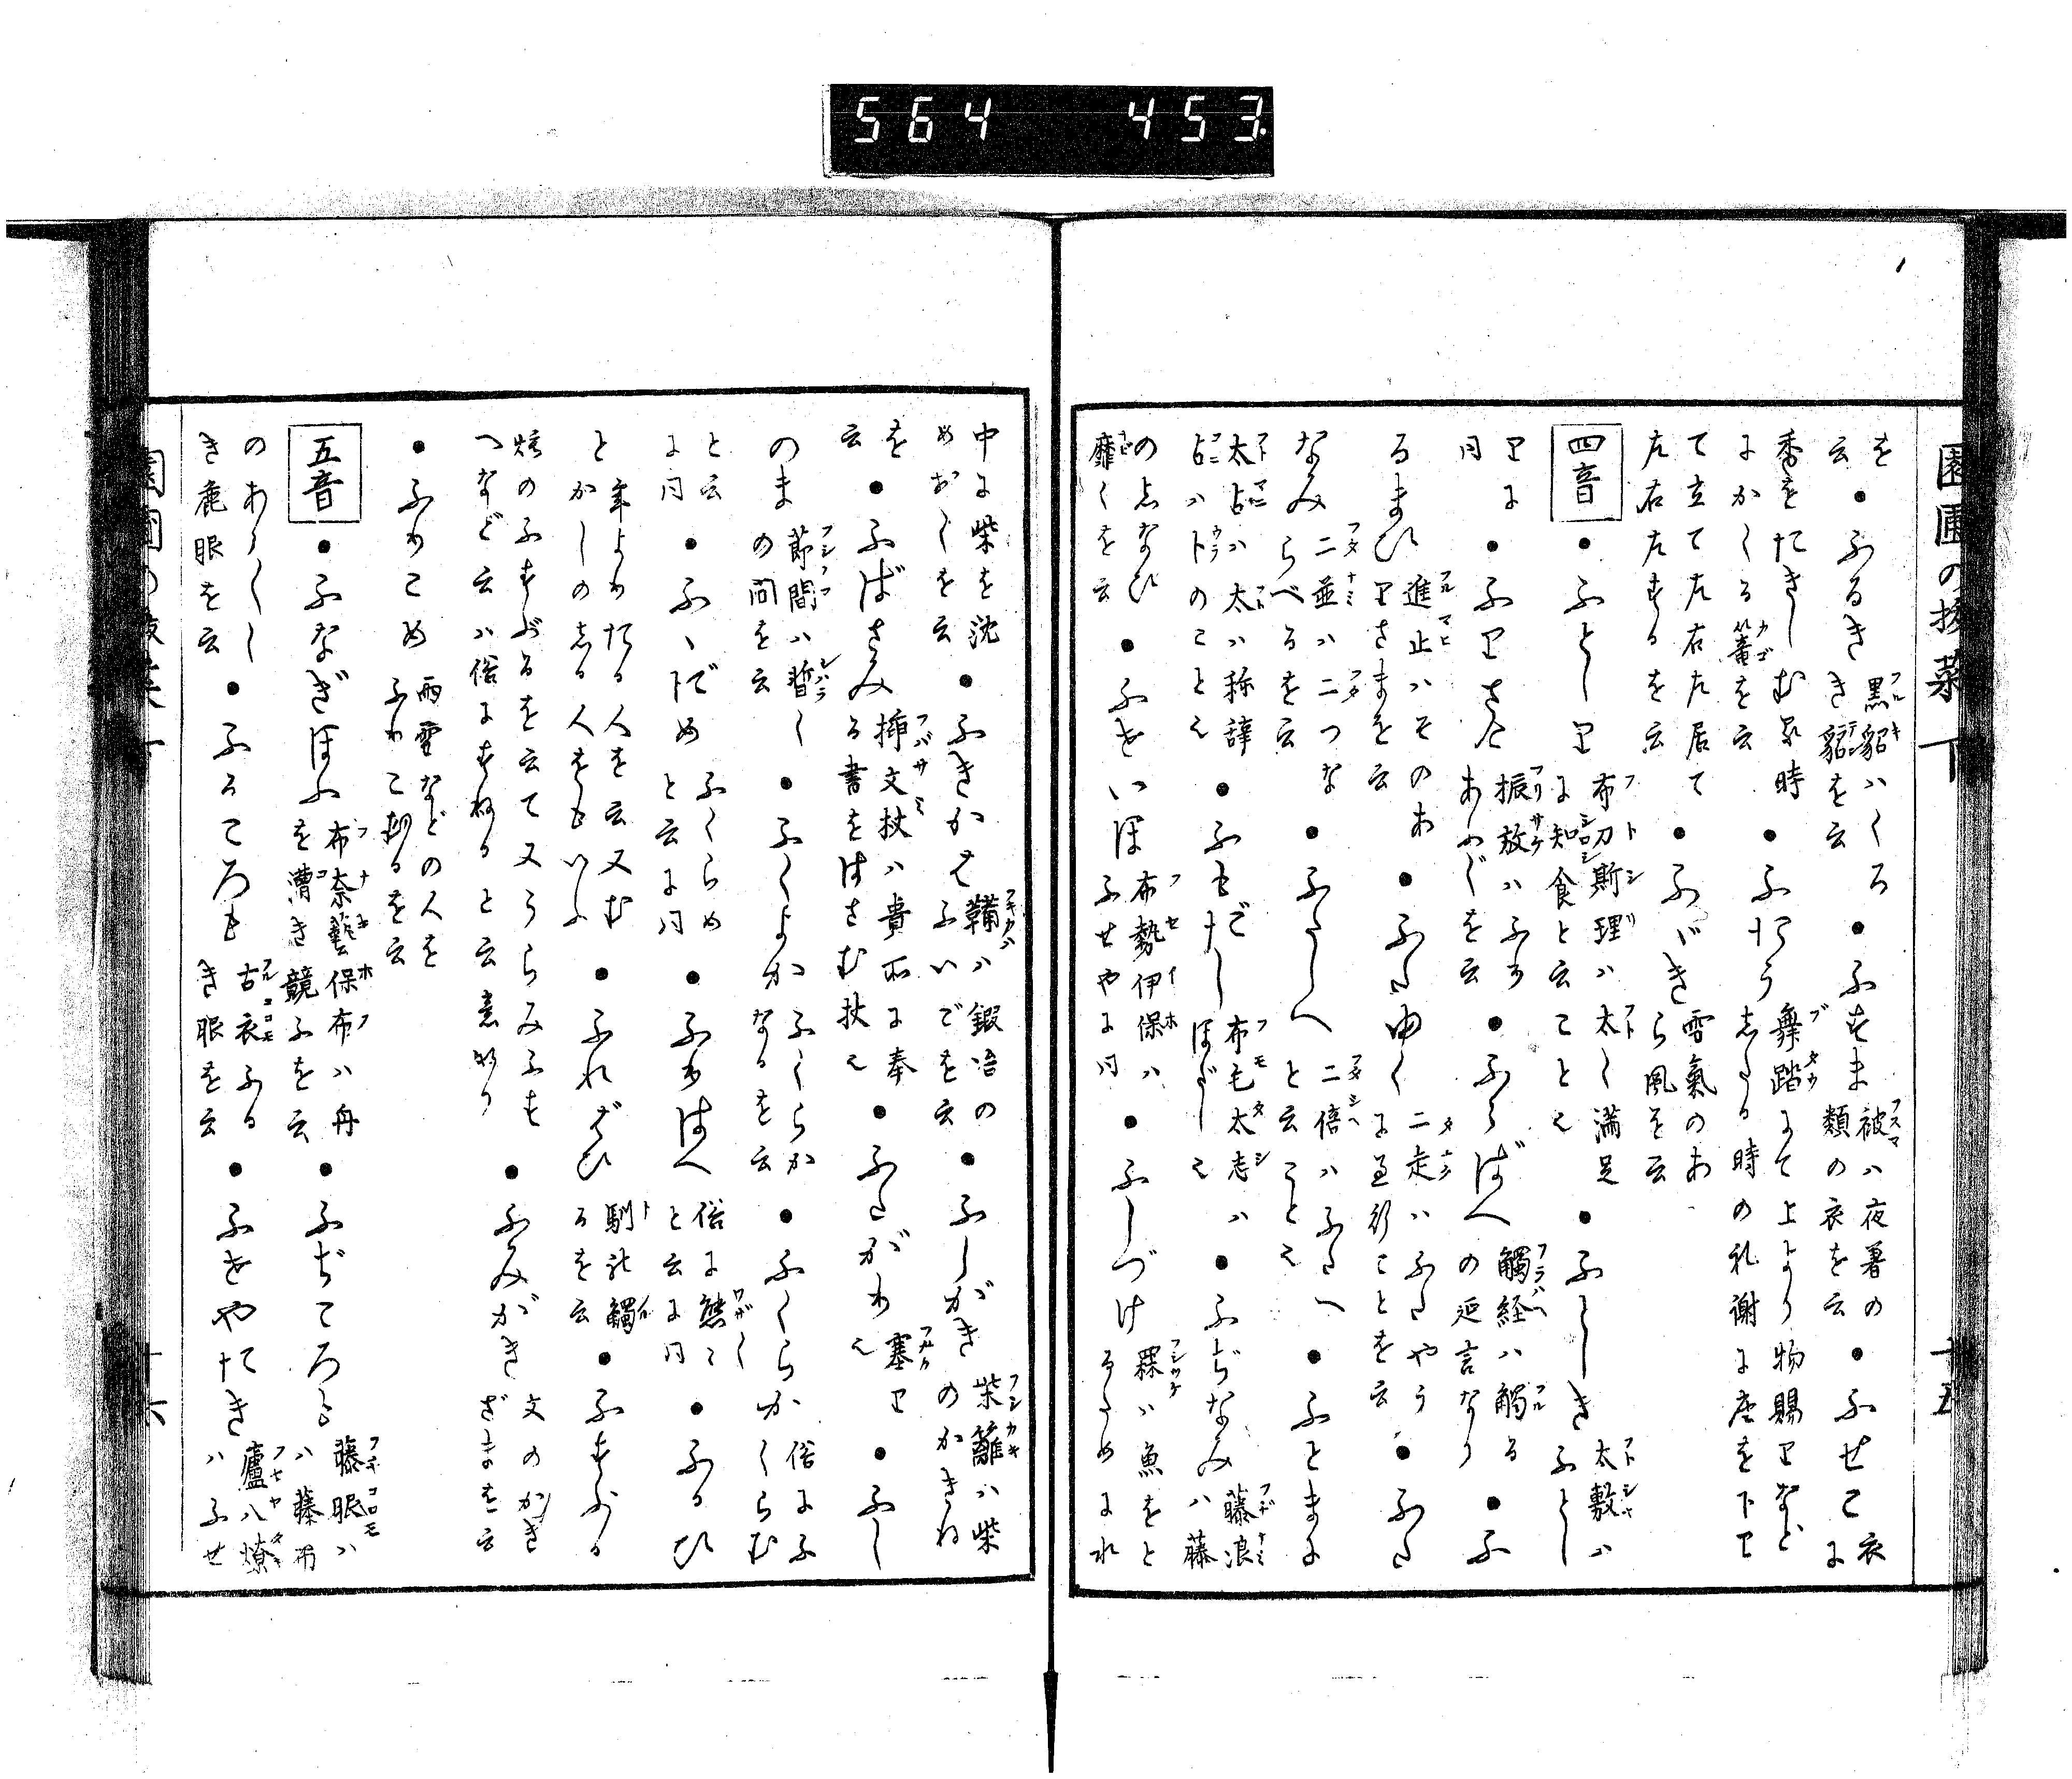 564 453
園圃の撥菜 下 十五
を
云 ●ふるき 黒貂ハくろき貂を云 ●ふすま 被ハ夜著の類の衣を云 ●ふせこ 衣に
香をたきしむる時にかくる篭を云 ●ふたう 舞踏にて上より物賜りなどしたる時の礼謝に座を下り
て立て左右左居て左右左するを云 ●ふゞき 雪氣のあらき風を云
四音 ●ふとしり 布刀斯理ハ太く満足に知食と云ことえ ●ふとしき 太敷ハふとし
りに同 ●ふりさけ 振放ハふりあふぐを云 ●ふらばへ 觸経ハ觸るの延言なり ●ふ
るまひ 進止ハそのありさまを云 ●ふたゆく 二走ハふたやうに至行ことを云 ●ふた
なみ 二並ハ二つならべるを云 ●ふたしへ 二倍ハふたへと云ことえ ●ふとまに
太占ハ太ハ称辞占ハ卜のことえ ●ふもだし 布毛太志ハほだしえ ●ふぢなみ 藤浪ハ藤
のしなひ靡くを云 ●ふせいほ 布勢伊保ハふせやに同 ●ふしづけ 罧ハ魚をとるためにれ
中に柴を沈めおくを云 ●ふきかは 鞴ハ鍛冶のふいごを云 ●ふしがき 柴籬ハ柴のかきね
を云 ●ふばさみ 挿文杖ハ貴所に奉る書をはさむ杖え ●ふたがり 塞りえ ●ふし
のま 節間ハ暫くの間を云 ●ふくよか ふくらかなるを云 ●ふくらか 俗にふくらむ
と云に同 ●ふゝドめ ふくらめと云に同 ●ふりはへ 俗に態々と云に同 ●ふるひ
と 年よりたる人を云又むかしの志る人をもいふ ●ふればひ 馴れ觸るを云 ●ふすぶる
煙のふすぶるを云て又うらみふもへなど云ハ俗にすねると云意なり ●ふみがき 文のかきざまを云
●ふりこめ 雨雪などの人をふりこむるを云
五音 ●ふなぎほふ 布奈藝保布ハ舟を漕き競ふを云 ●ふぢころも 藤眼ハハ藤布
のあらくしき麁眼を云 ●ふるころも 古衣ふるき眼を云 ●ふせやたき 廬八燎ハふせ